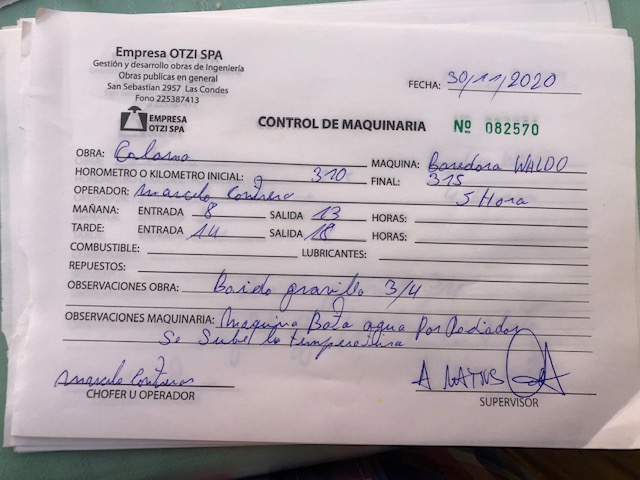 Empresa OTZI SPA
Gestión y desarrollo obras de Ingeniería
Obras publicas en general
San Sebastian 2957 Las Condes
Fono 225387413
FECHA: 30/11/2020
EMPRESA
OTZI SPA
CONTROL DE MAQUINARIA Nº 082570
OBRA: Calama MAQUINA: Baredora WALDO
HOROMETRO O KILOMETRO INICIAL: 310 FINAL: 315
OPERADOR: 5 Hora
MAÑANA: ENTRADA 8 SALIDA 13 HORAS:
TARDE: ENTRADA 14 SALIDA 18 HORAS:
COMBUSTIBLE: LUBRICANTES:
REPUESTOS:
OBSERVACIONES OBRA: Barido gravilla 3/4
OBSERVACIONES MAQUINARIA: Maquina Bota agua Por Radiador
Se Subio la temperatura
CHOFER U OPERADOR
SUPERVISOR